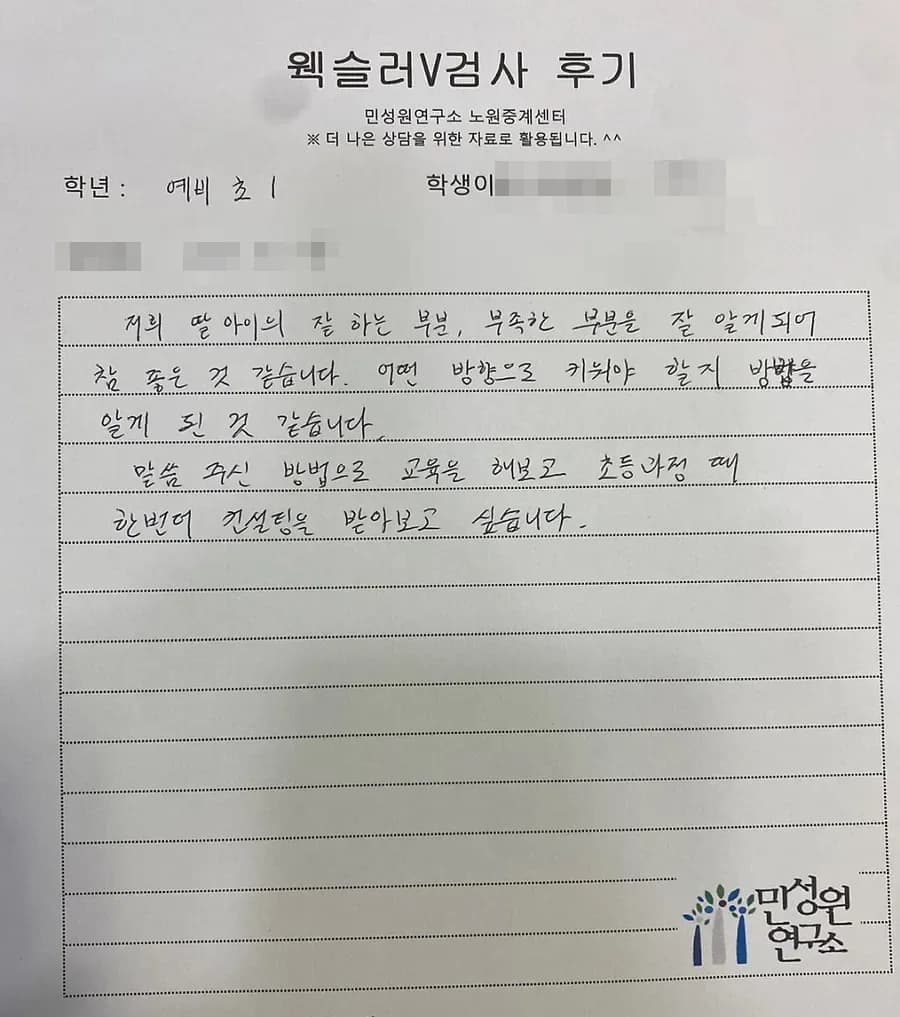 웩슬러V검사 후기
민성원연구소 노원중계센터
※ 더 나은 상담을 위한 자료로 활용됩니다. ^^
학년 : 예비 초 1 학생이
저희 딸 아이의 잘 하는 부분, 부족한 부분을 잘 알게되어
참 좋은 것 같습니다. 어떤 방향으로 키워야 할지 방법을
알게 된 것 같습니다.
말씀 주신 방법으로 교육을 해보고 초등과정 때
한번더 컨설팅을 받아보고 싶습니다.
민성원
연구소